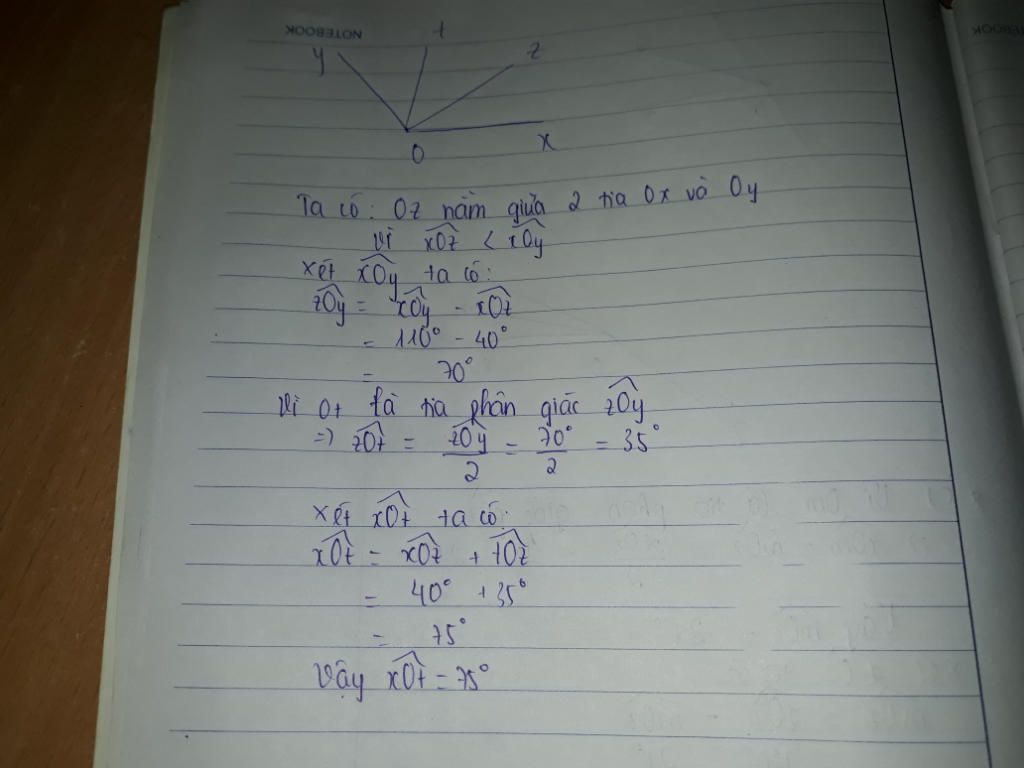 NOTEBOOK
NOTEBOOK
y t z
O x
Ta có: Oz nằm giữa 2 tia Ox và Oy
Vì xOz < xOy
Xét xOy ta có:
zOy = xOy - xOz
= 110° - 40°
= 70°
Vì Ot là tia phân giác zOy
=> zOt = zOy/2 = 70°/2 = 35°
Xét xOt ta có:
xOt = xOz + tOz
= 40° + 35°
= 75°
Vậy xOt = 75°